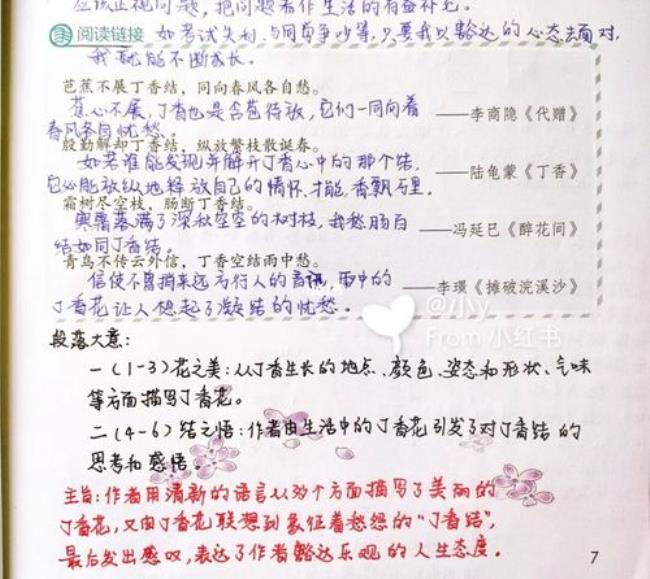 应该正视问题，把问题看作生活的有益补充。
阅读链接 如考试失利、与同学争吵等，只要我以豁达的心态去面对，
我就能不断成长。
芭蕉不展丁香结，同向春风各自愁。
蕉心不展，丁香也是含苞待放，它们一同向着 ——李商隐《代赠》
春风各自忧愁。
殷勤解却丁香结，纵放繁枝散诞春。
如若谁能发现并解开丁香心中的那个结， ——陆龟蒙《丁香》
它必能放纵地释放自己的情怀，才能，香飘万里。
霜树尽空枝，肠断丁香结。
寒霜落满了深秋空空的树枝，我愁肠百 ——冯延巳《醉花间》
结如同丁香结。
青鸟不传云外信，丁香空结雨中愁。
信使不曾捎来远方行人的音讯，雨中的 ——李璟《摊破浣溪沙》
丁香花让人想起了凝结的忧愁。
@小y
From 小红书
段落大意：
一（1-3）花之美：从丁香生长的地点、颜色、姿态和形状、气味
等方面描写丁香花。
二（4-6）结之悟：作者由生活中的丁香花引发了对丁香结的
思考和感悟。
主旨：作者用清新的语言从多个方面描写了美丽的
丁香花，又由丁香花联想到象征着愁怨的“丁香结”，
最后发出感叹，表达了作者豁达乐观的人生态度。
7